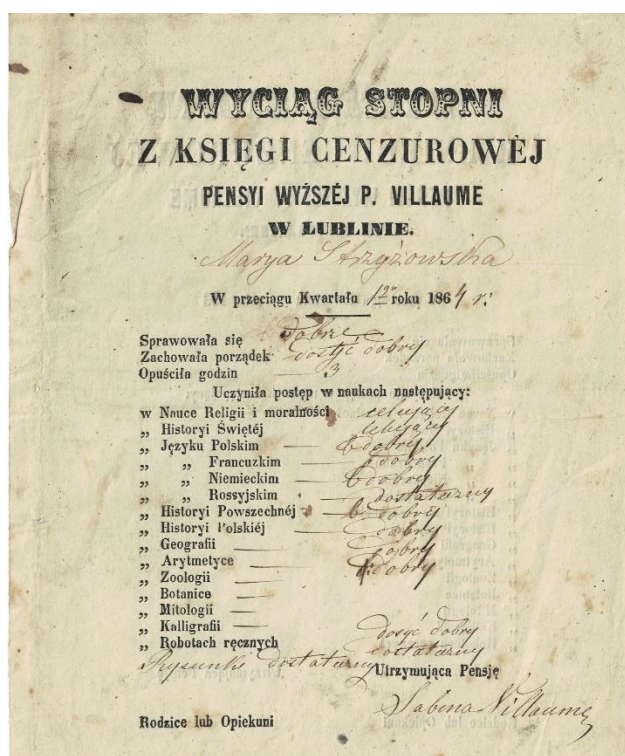 WYCIĄG STOPNI
Z KSIĘGI CENZUROWÉJ
PENSYI WYŻSZÉJ P. VILLAUME
W LUBLINIE.
Marya Strzyżowska
W przeciągu Kwartału 1go roku 1864 r:
Sprawowała się dobrze
Zachowała porządek dosyć dobry
Opuściła godzin 3
Uczyniła postęp w naukach następujący:
w Nauce Religii i moralności celujący
„ Historyi Świętéj celujący
„ Języku Polskim b dobry
„ „ Francuzkim dobry
„ „ Niemieckim b dobry
„ „ Rossyjskim dostateczny
„ Historyi Powszechnéj b dobry
„ Historyi Polskiéj dobry
„ Geografii dobry
„ Arytmetyce dobry
„ Zoologii
„ Botanice
„ Mitologii
„ Kalligrafii dosyć dobry
„ Robotach ręcznych dostateczny
Rysunki dostateczny Utrzymująca Pensję
Sabina Villaume
Rodzice lub Opiekuni